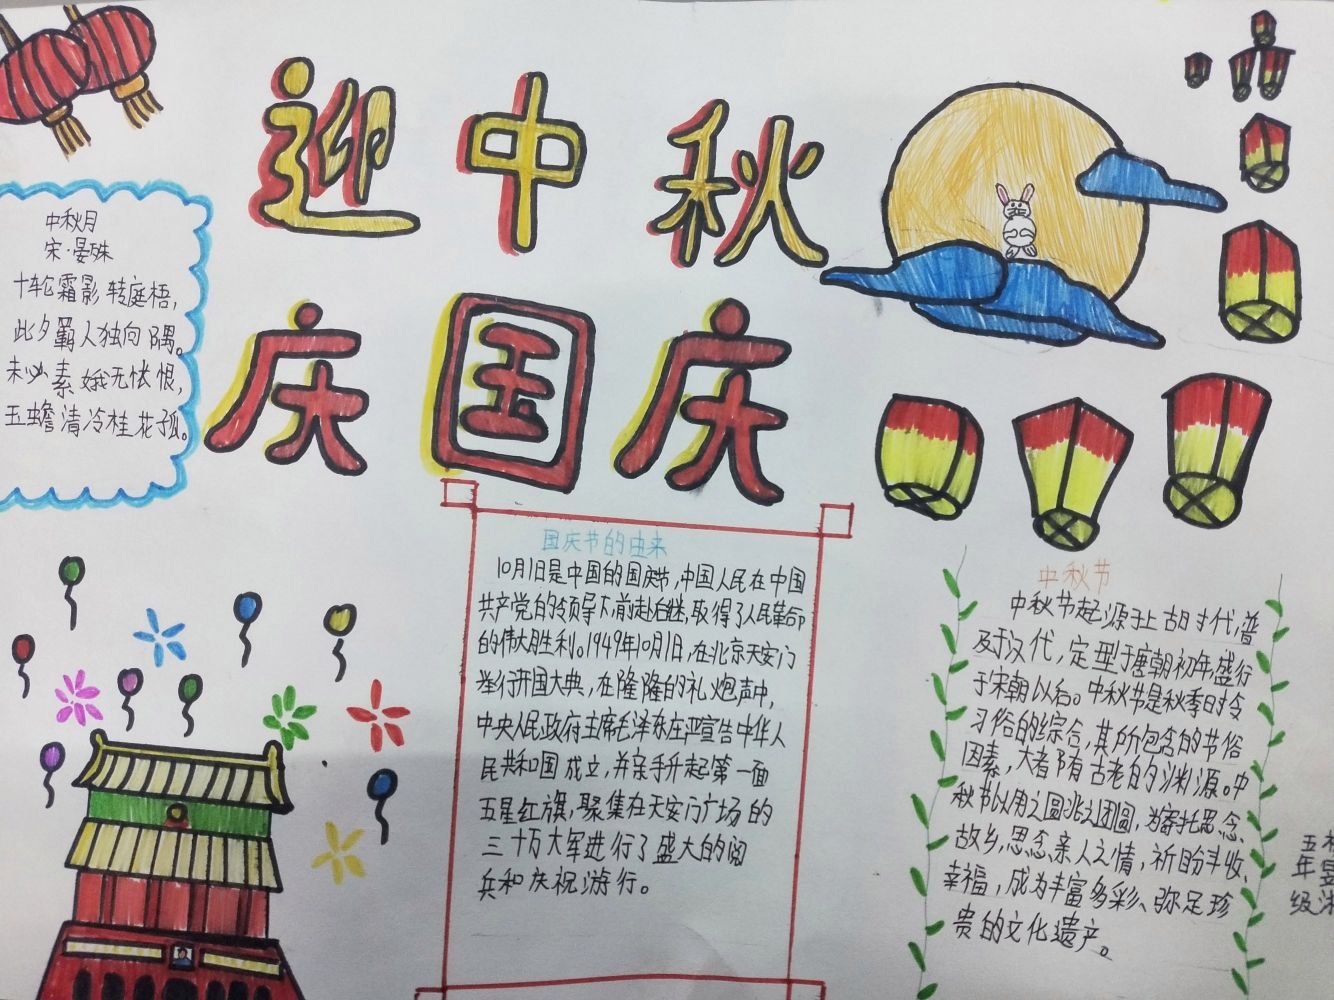 迎中秋
庆国庆
中秋月
宋·晏殊
十轮霜影转庭梧,
此夕羁人独向隅。
未必素娥无怅恨,
玉蟾清冷桂花孤。
国庆节的由来
10月1日是中国的国庆节,中国人民在中国
共产党的领导下,前赴后继,取得了人民革命
的伟大胜利。1949年10月1日,在北京天安门
举行开国大典,在隆隆的礼炮声中,
中央人民政府主席毛泽东庄严宣告中华人
民共和国成立,并亲手升起第一面
五星红旗,聚集在天安门广场的
三十万大军进行了盛大的阅
兵和庆祝游行。
中秋节
中秋节起源于上古时代,普
及于汉代,定型于唐朝初年,盛行
于宋朝以后。中秋节是秋季时令
习俗的综合,其所包含的节俗
因素,大者阝有古老的渊源。中
秋节以月之圆兆人之团圆,为寄托思念
故乡,思念亲人之情,祈盼丰收、
幸福,成为丰富多彩、弥足珍
贵的文化遗产。
五年级